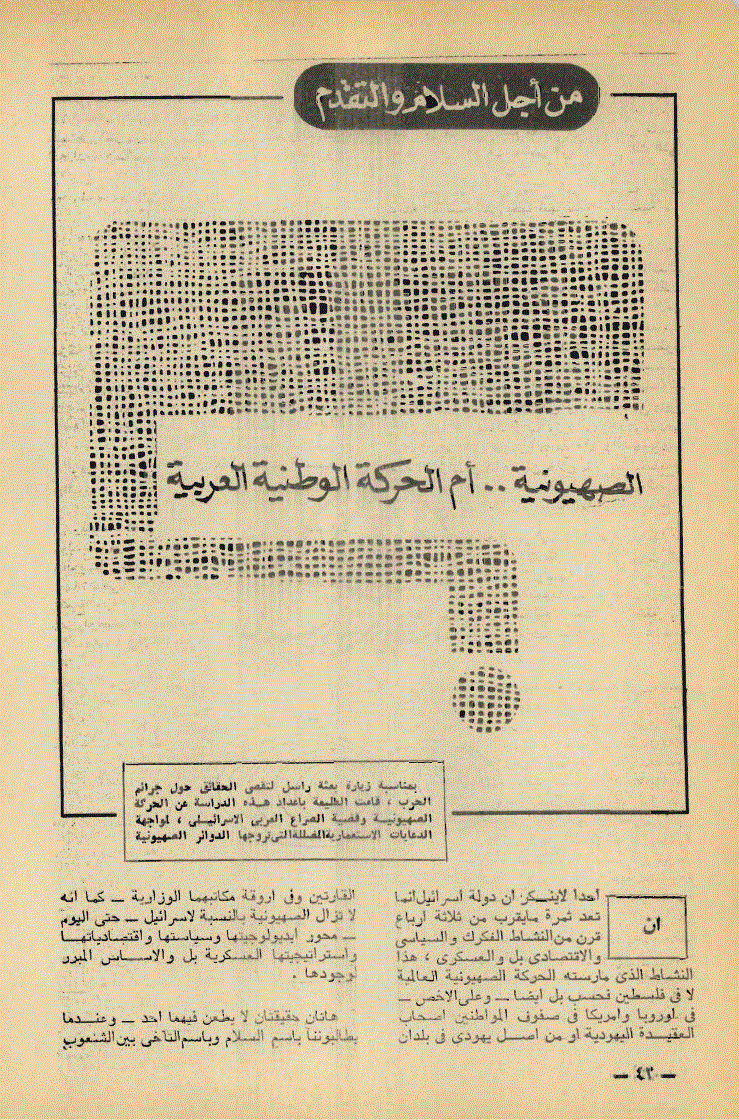 من أجل السلام والتقدم
الصهيونية .. أم الحركة الوطنية العربية
بمناسبة زيارة بعثة راسل لتقصى الحقائق حول جرائم
الحرب ، قامت الطليعة باعداد هذه الدراسة عن الحركة
الصهيونية وقضية الصراع العربى الاسرائيلى ، لمواجهة
الدعايات الاستعمارية المضللة التى تروجها الدوائر الصهيونية
ان
احدا لاينكر ان دولة اسرائيل انما
تعد ثمرة مايقرب من ثلاثة ارباع
قرن من النشاط الفكرى والسياسى
والاقتصادى بل والعسكرى ، هذا
النشاط الذى مارسته الحركة الصهيونية العالمية
لا فى فلسطين فحسب بل ايضا ــ وعلى الاخص ــ
فى اوروبا وامريكا فى صفوف المواطنين اصحاب
العقيدة اليهودية او من اصل يهودى فى بلدان
القارتين وفى اروقة مكاتبهما الوزارية ــ كما انه
لا تزال الصهيونية بالنسبة لاسرائيل ــ حتى اليوم
ــ محور ايديولوجيتها وسياستها واقتصادياتها
واستراتيجيتها العسكرية بل والاساس المبرر
لوجودها .
هاتان حقيقتان لا يطعن فيهما احد ــ وعندما
يطالبوننا باسم السلام وباسم التآخى بين الشعوب
ــ ٤٢ ــ